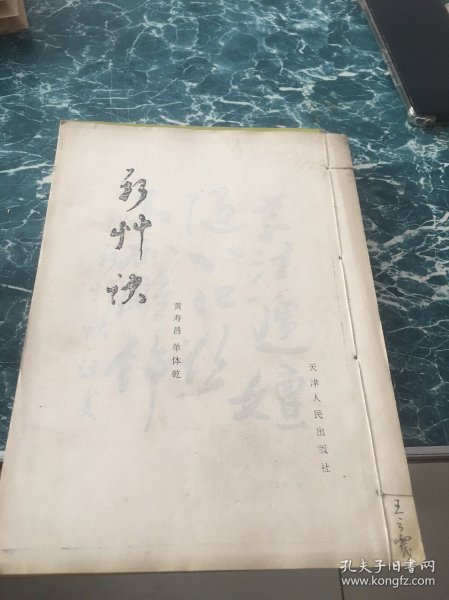 新艸诀
黄寿昌 单体乾
天津人民出版社
孔夫子旧书网
www.kongfz.com